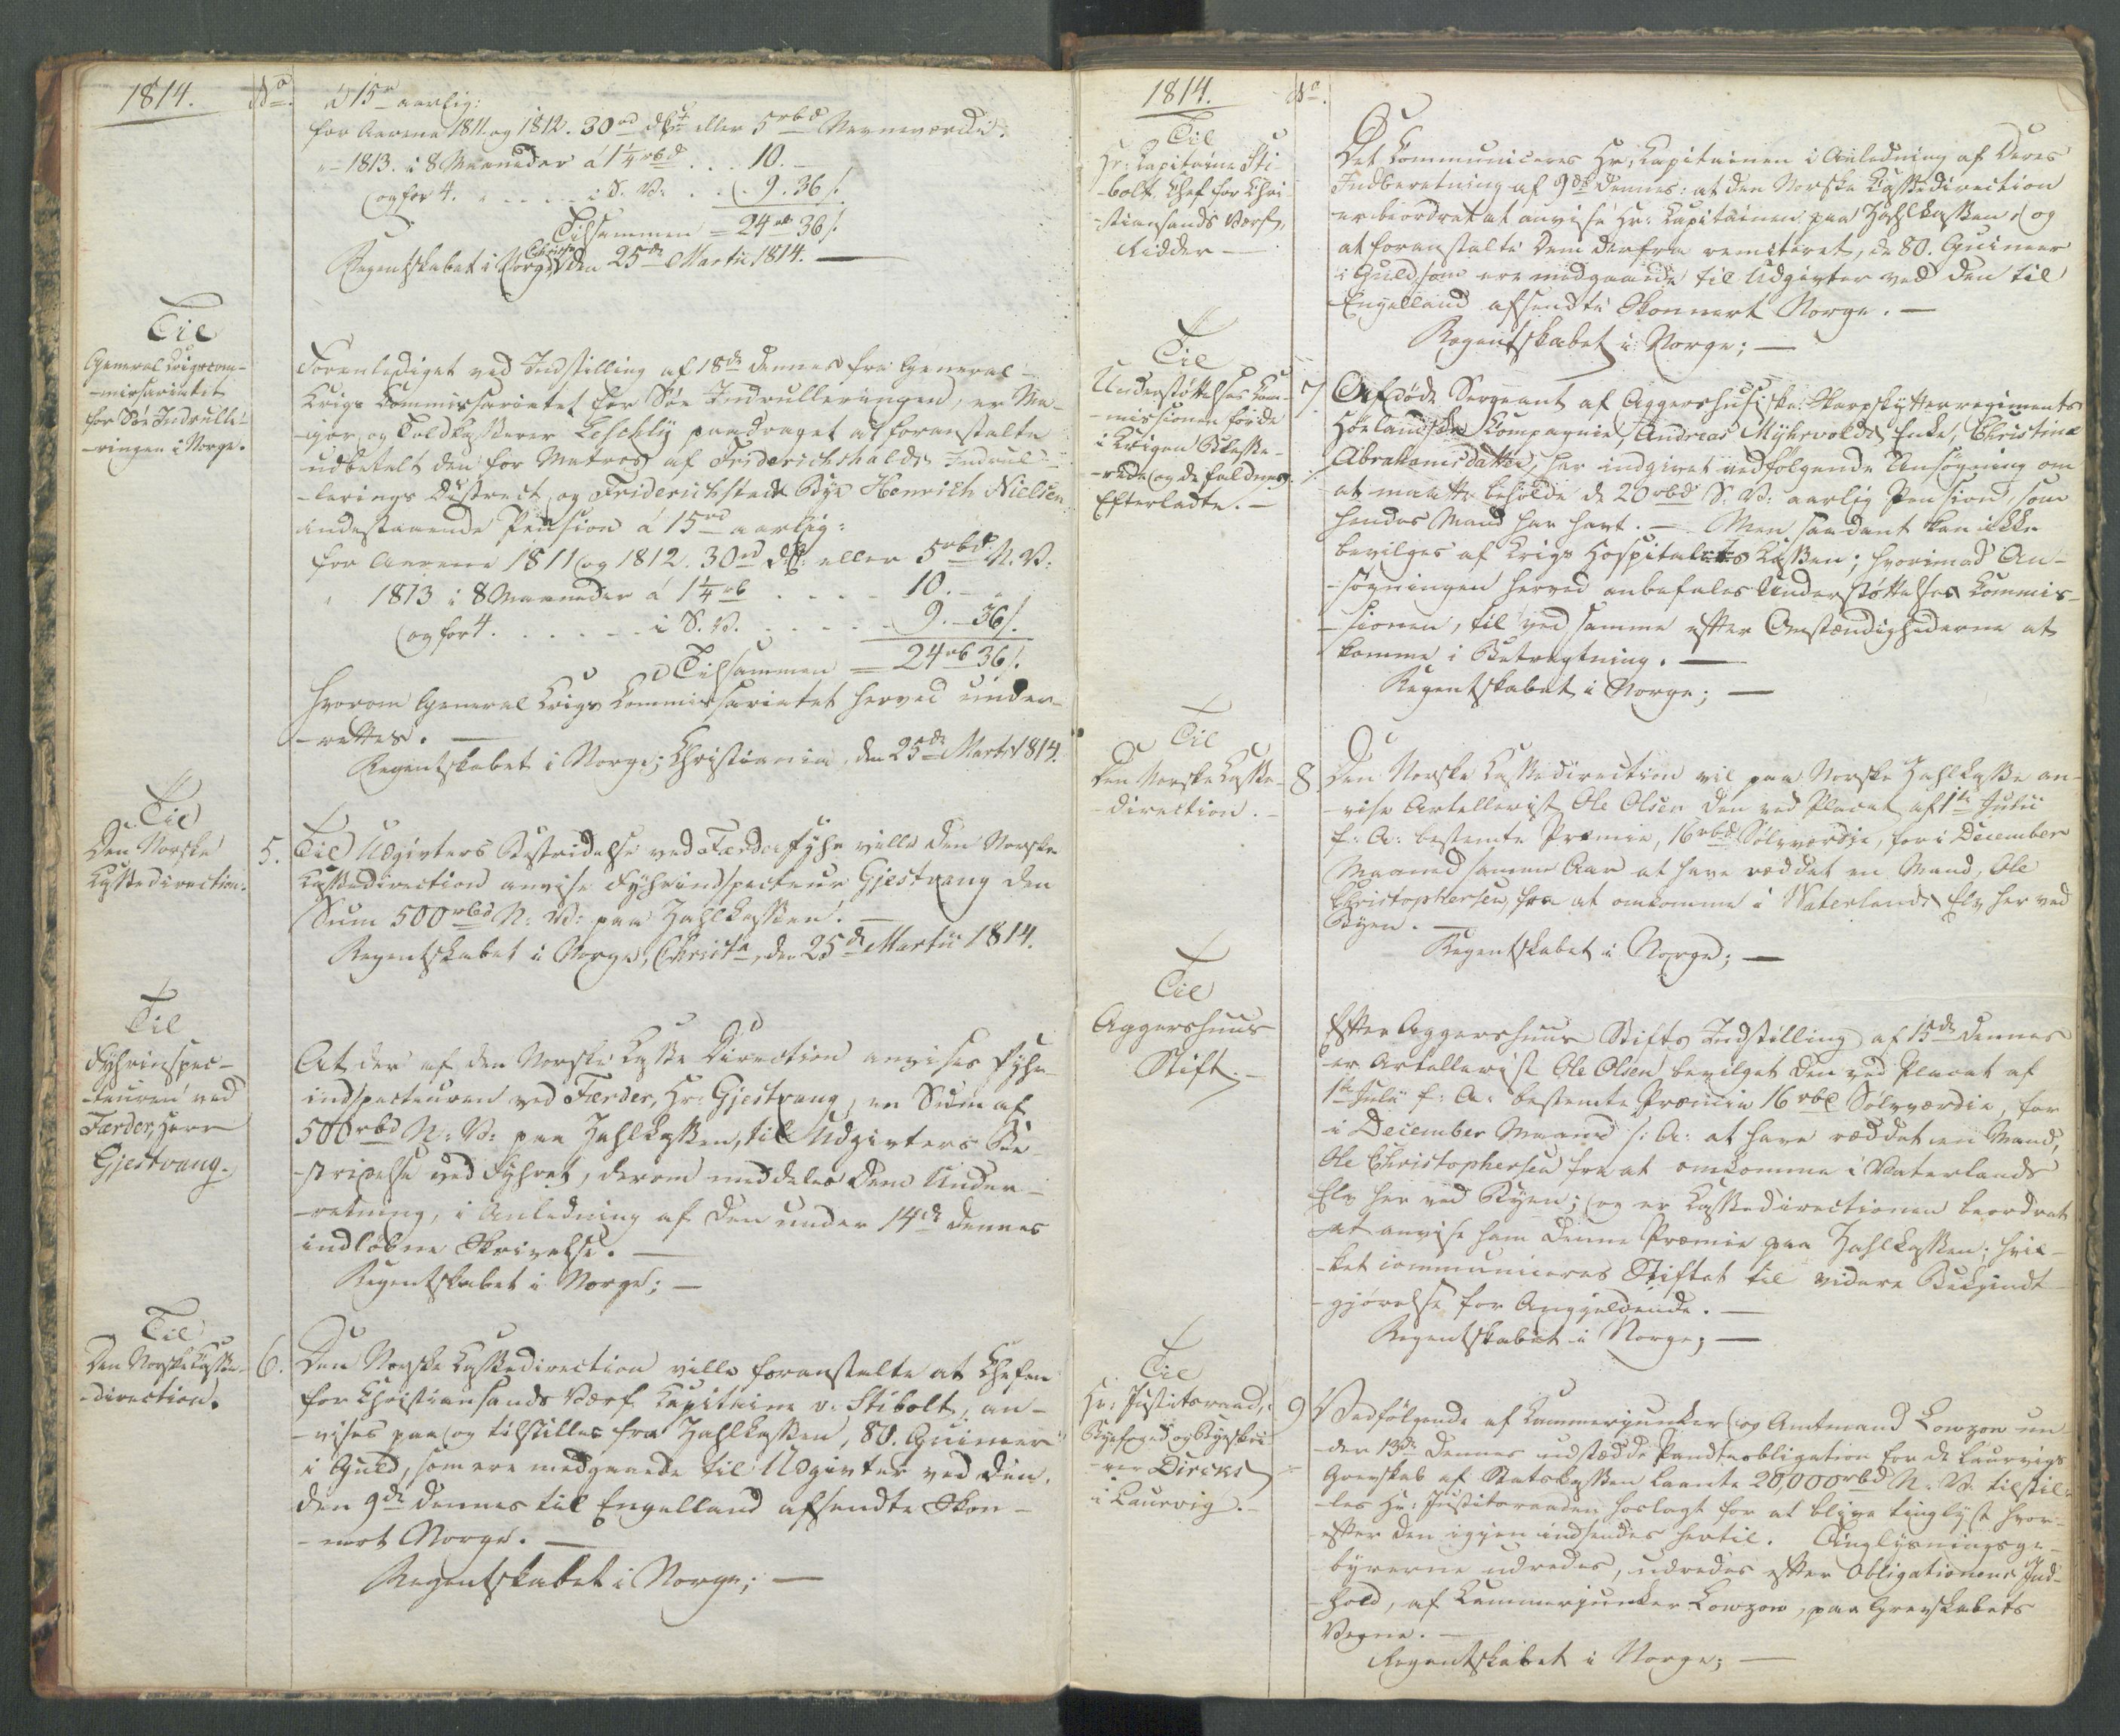 1814.
No.
á 15rd aarlig:
for Aarene 1811. og 1812. 30rd dC eller 5rbd Navneværdi.
"- 1813. i 8 Maaneder á 1¼rbd . . . 10. -
og for 4. " . . . . i S. V: . . . 9. 36/.
Tilsammen = 24rb 36/.
Regentskabet i Norge, Christa den 25de Martii 1814. —
Til
General Krigscom-
-missariatet
for Søe Indrulle-
-ringen i Norge.
Foranlediget ved Indstilling af 18de dennes fra General-
Krigs Commissariatet for Søe Indrulleringen, er Ma-
-jor og Toldkasserer Leschly paadraget at foranstalte
udbetalt den for Matros af Friderichshalds Indrul-
-lerings District, og Friderichstads Bye Henrich Nielsen
indestaaende Pension á 15rd aarlig:
for Aarene 1811 og 1812. 30rd dC: eller 5rbd N. V:
" 1813 i 8 Maaneder á 1¼rb . . . . 10. - "
og for 4. . . . . . i S. V. . . . . . 9. - 36/.
Tilsammen = 24rb 36/.
hvorom General Krigs Commissariatet herved under-
-rettes. —
Regentskabet i Norge; Christiania, den 25de Marti 1814.
Til
Den Norske
Kassedirection.
5. Til Udgivters Bestridelse ved Færder Fyhr ville den Norske
Kassedirection anvise Fyhrindspecteur Gjestvang den
Sum 500rbd N: V: paa Zahlkassen. —
Regentskabet i Norge, Christa, den 25de Martii 1814.
Til
Fyhrinspec-
-teuren ved
Færder, Herr
Gjestvang.
At der af den Norske Kasse Direction anvises Fyhr-
indspecteuren ved Færder, Hr: Gjestvang, en Sum af
500rbd N: V: paa Zahlkassen, til Udgivters Be-
-stridelse ved Fyhret, derom meddeles Dem Under-
-retning, i Anledning af den under 14de dennes
indløbne Skrivelse. —
Regentskabet i Norge; —
Til
Den Norske Kasse-
-direction.
6. Den Norske Kassedirection ville foranstalte at Chefen
for Christiansands Værf Kapitaine v: Stibolt, an-
-vises paa og tilstilles fra Zahlkassen, 80. Guineer
i Guld, som ere medgaaede til Udgivter ved den,
den 9de dennes til Engelland afsendte Skon-
-nert Norge. —
Regentskabet i Norge; —
1814.
No.
Til
Hr: Kapitaine Sti-
-bolt Chef for Chri
-stiansands Værf,
Ridder —
Det Communiceres Hr. Kapitainen i Anledning af Deres
Indberetning af 9de dennes: at den Norske Kassedirection
er beordret at anvise Hr: Kapitainen paa Zahlkassen, og
at foranstalte Dem derfra remitteret, de 80. Guineer
i Guld, som ere medgaaede til Udgivter ved den til
Engelland afsendte Skonnert Norge. —
Regentskabet i Norge; —
Til
Understøttelses Com-
-missionen for de
i Krigen Qvæste-
-rede og de faldnes
Efterladte. —
7. Afdøde Sergeant af Aggershusiske Skarpskytterregiments
Hølandske Kompagnie, Andreas Myhrvolds Enke, Christine
Abrahamsdatter, har indgivet vedfølgende Ansøgning om
at maatte beholde de 20rbd S. V: aarlig Pension, som
hendes Mand har havt. — Men saadant kan ikke
bevilges af Krigs Hospitalets Kassen; hvorimod An-
-søgningen herved anbefales Understøttelses Kommis-
-sionen, til ved samme efter Omstændighederne at
komme i Betragtning. —
Regentskabet i Norge; —
Til
Den Norske Kasse-
-direction. -
8. Den Norske Kassedirection vil paa Norske Zahlkasse an-
-vise Artellerist Ole Olsen den ved Placat af 1ste Julii
f: A: bestemte Præmie, 16rbd Sølvværdie, for i December
Maaned samme Aar at have reddet en Mand, Ole
Christophersen, fra at omkomme i Vaterlands Elv her ved
Byen. —
Regentskabet i Norge; —
Til
Aggershuus
Stift. -
Efter Aggershuus Stifts Indstilling af 15de dennes
er Artellerist Ole Olsen bevilget den ved Placat af
1ste Julii f: A: bestemte Præmie 16rbd Sølvværdie, for
i December Maaned s: A: at have reddet en Mand,
Ole Christophersen fra at omkomme i Vaterlands
Elv her ved Byen; og er Kassedirectionen beordret
at anvise ham denne Præmie paa Zahlkassen; hvil-
-ket communiceres Stiftet til videre Bekjendt-
-gjørelse for Angjeldende. —
Regentskabet i Norge; —
Til
Hr: Justitsraad,
Byefoged og Byeskri
-ver Dircks
i Laurvig. -
9 Vedfølgende af Kammerjunker og Amtmand Lowzow un-
-der 13de dennes udstædde Pandteobligation for de Laurvigs
Grevskab af Statskassen laante 20,000rbd N. V. tilstil-
-les Hr: Justitsraaden hoslagt for at blive tinglyst hvor-
-efter den igjen indsendes hertil. Tinglysningsge-
-byrerne udredes, udredes efter Obligationens Ind-
-hold, af Kammerjunker Lowzow, paa Grevskabets
Vegne. —
Regentskabet i Norge; —